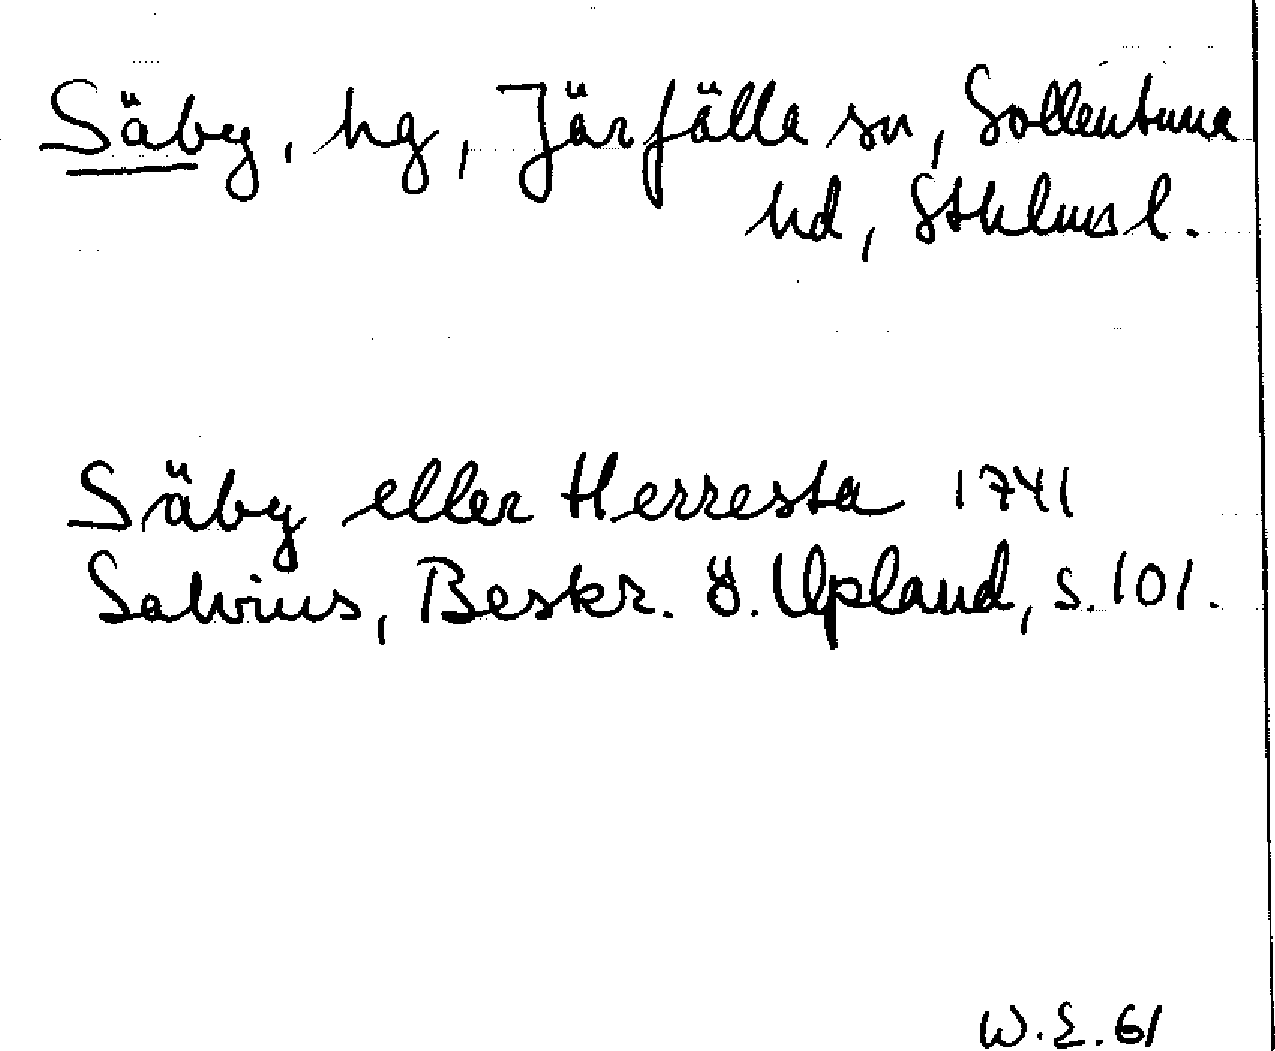 Säby, hg, Järfälla sn, Sollentuna
hd, Sthlms l.
Säby eller Herresta 1741
Salvius, Beskr. ö. Upland, s. 101.
W.E. 61